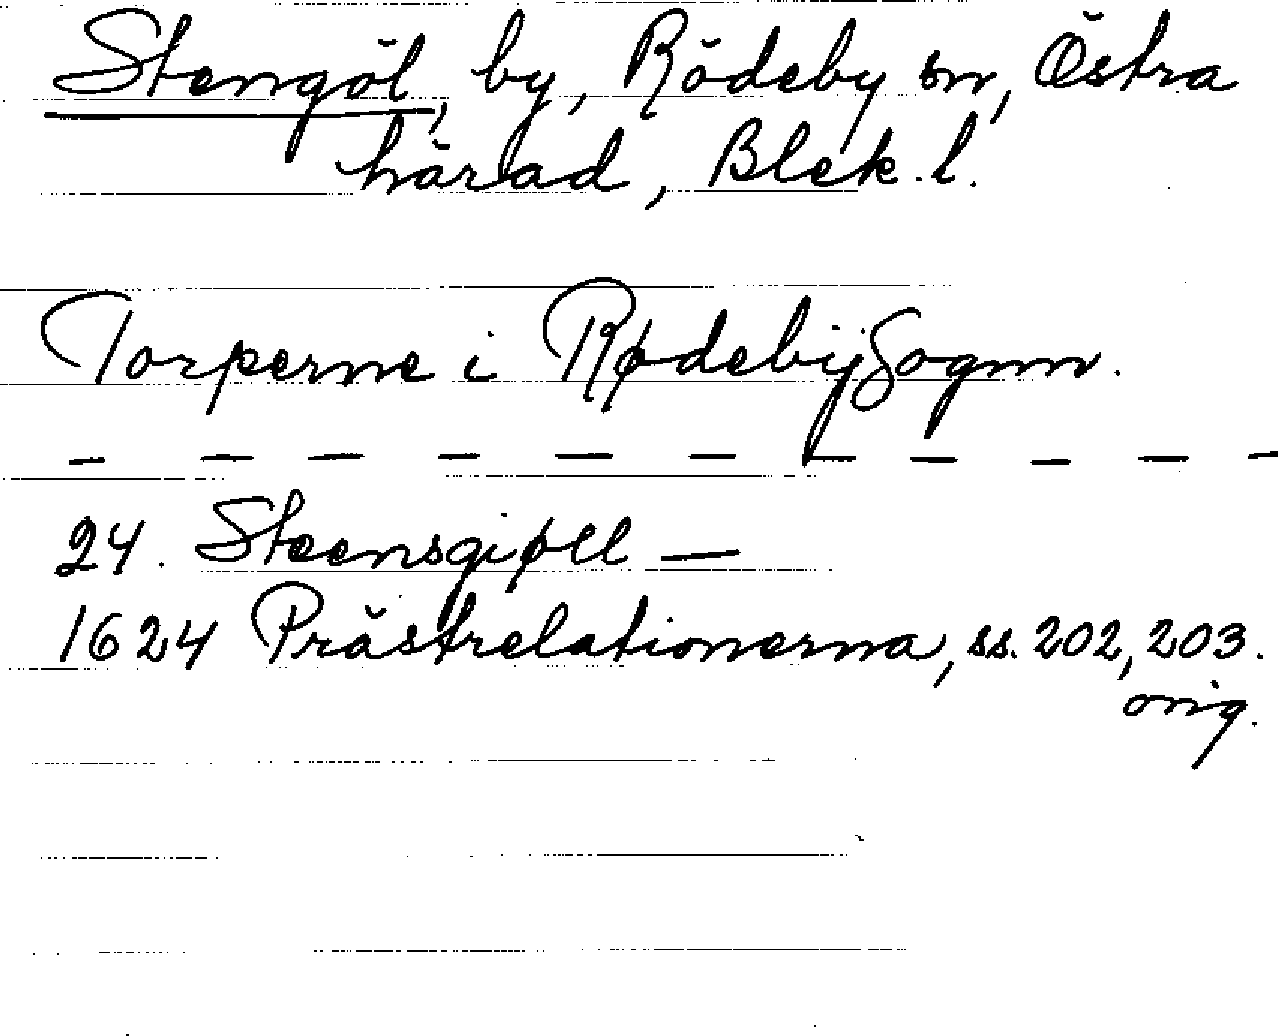 Stengöl, by, Rödeby sn, Östra
härad, Blek. l.
Torperne i Rødebÿ Sognn.
— — — — — — — — — — —
24. Steensgiøll —
1624 Prästrelationerna, ss. 202, 203.
orig.